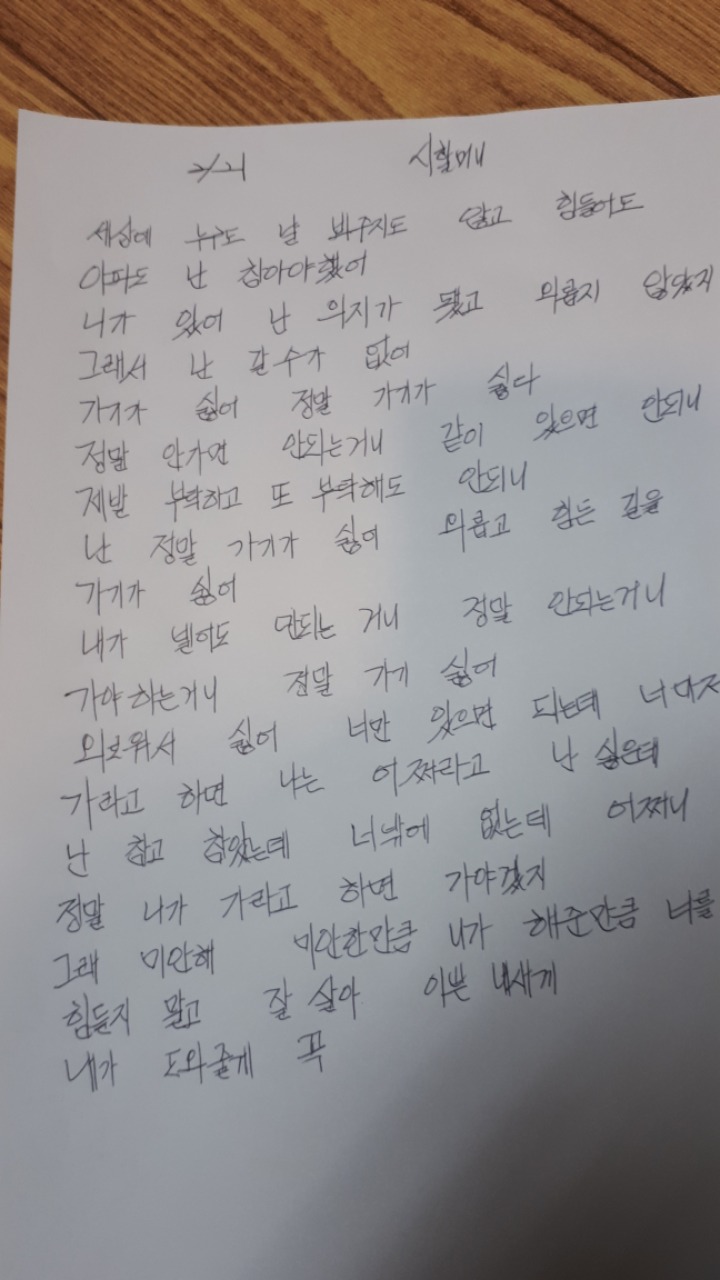 2/21 시할머니
세상에 누구도 날 봐주지도 않고 힘들어도
아파도 난 참아야했어
니가 있어 난 의지가 됐고 외롭지 않았지
그래서 난 갈수가 없어
가기가 싫어 정말 가기가 싫다
정말 안가면 안되는거니 같이 있으면 안되니
제발 부탁하고 또 부탁해도 안되니
난 정말 가기가 싫어 외롭고 힘든 길을
가기가 싫어
내가 빌어도 안되는 거니 정말 안되는거니
가야하는거니 정말 가기 싫어
외로워서 싫어 너만 있으면 되는데 너마저
가라고 하면 나는 어쩌라고 난 싫은데
난 참고 참았는데 너밖에 없는데 어쩌니
정말 니가 가라고 하면 가야겠지
그래 미안해 미안한만큼 니가 해준만큼 너를
힘들지 말고 잘 살아 이쁜 내새끼
내가 도와줄게 꼭